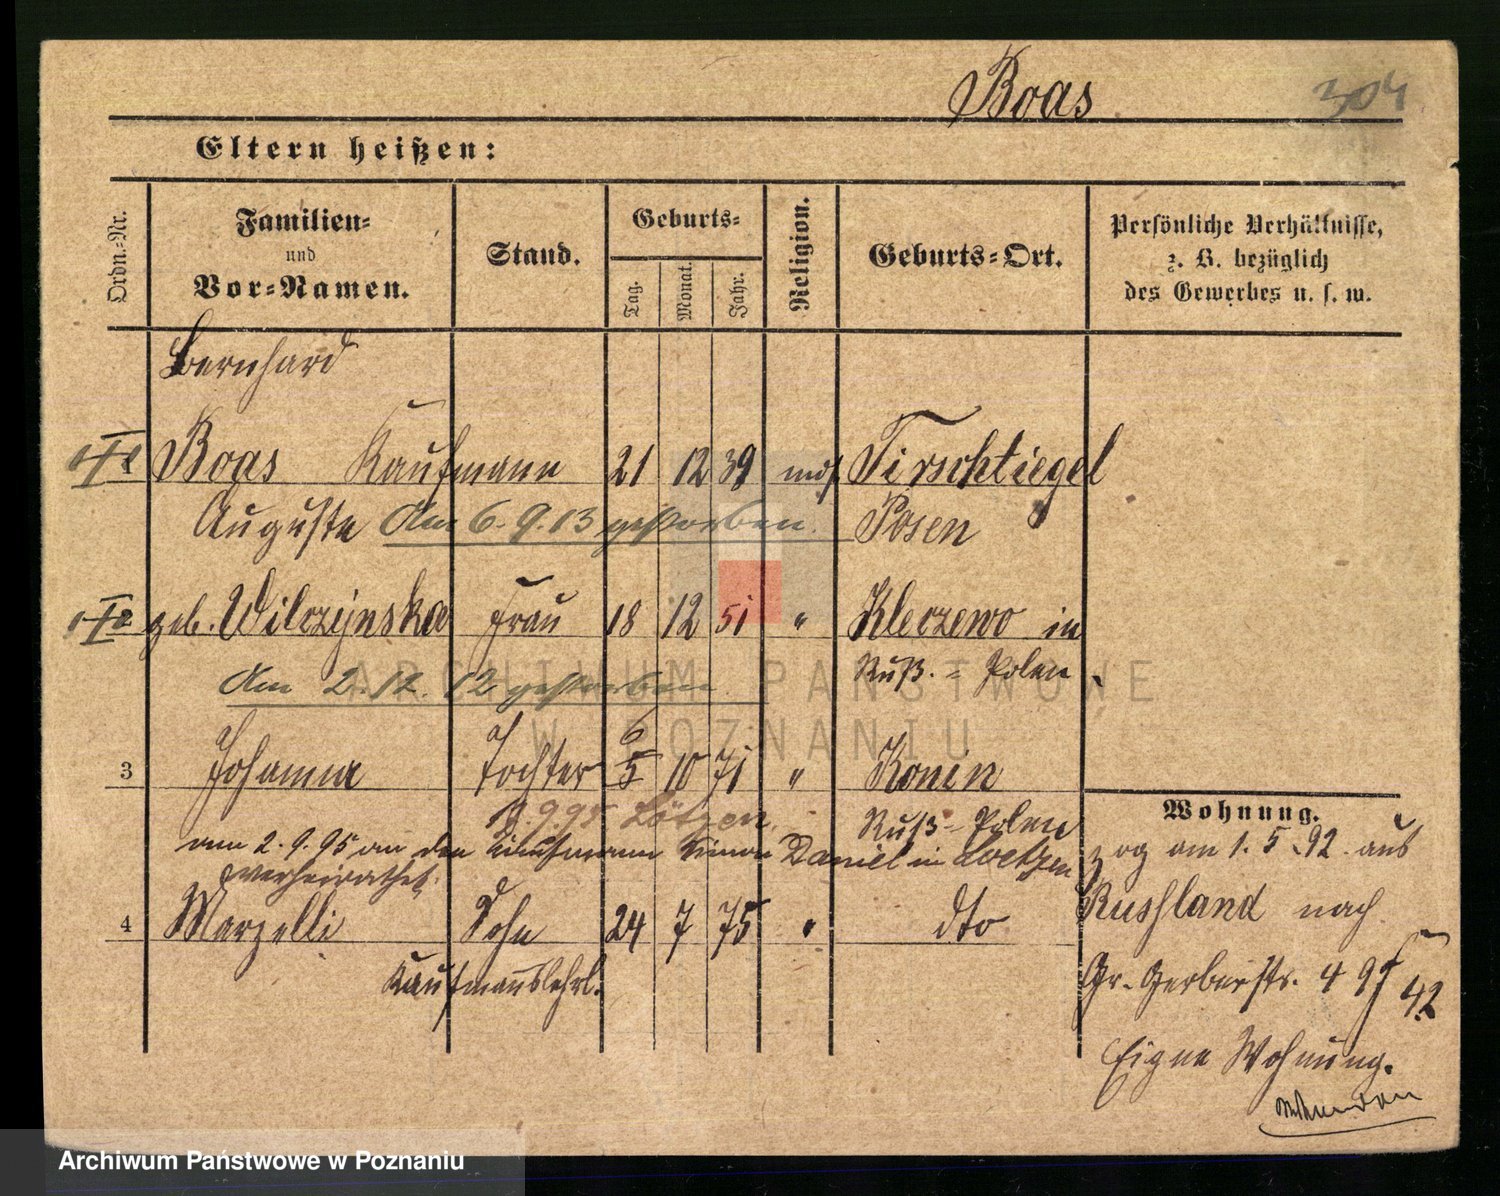 Boas
304
Eltern heißen:
Ordn.-Nr.
Familien-
und
Vor-Namen.
Stand.
Geburts-
Tag.
Monat.
Jahr.
Religion.
Geburts-Ort.
Persönliche Verhältnisse,
z. B. bezüglich
des Gewerbes u. s. w.
Bernhard
Boas Kaufmann 21 12 39 mos Tirschtiegel
Auguste Am 6.9.13 gestorben. Posen
geb. Wilczynska Frau 18 12 51 " Kleczewo in
Am 2.12.12 gestorben. Ruß.= Polen
6
3 Johanna Tochter 5 10 71 " Konin
Lötzen Ruß= Polen
am 2.9.95 an den Kaufmann Simon Daniel in Loetzen
verheirathet.
4 Marzelli Sohn 24 7 75 " dto
Kaufmannslehrl.
Wohnung.
zog am 1.5.92 aus
Russland nach
Gr. Gerberstr. 4
Eigne Wohnung.
ARCHIWUM PAŃSTWOWE
W POZNANIU
Archiwum Państwowe w Poznaniu